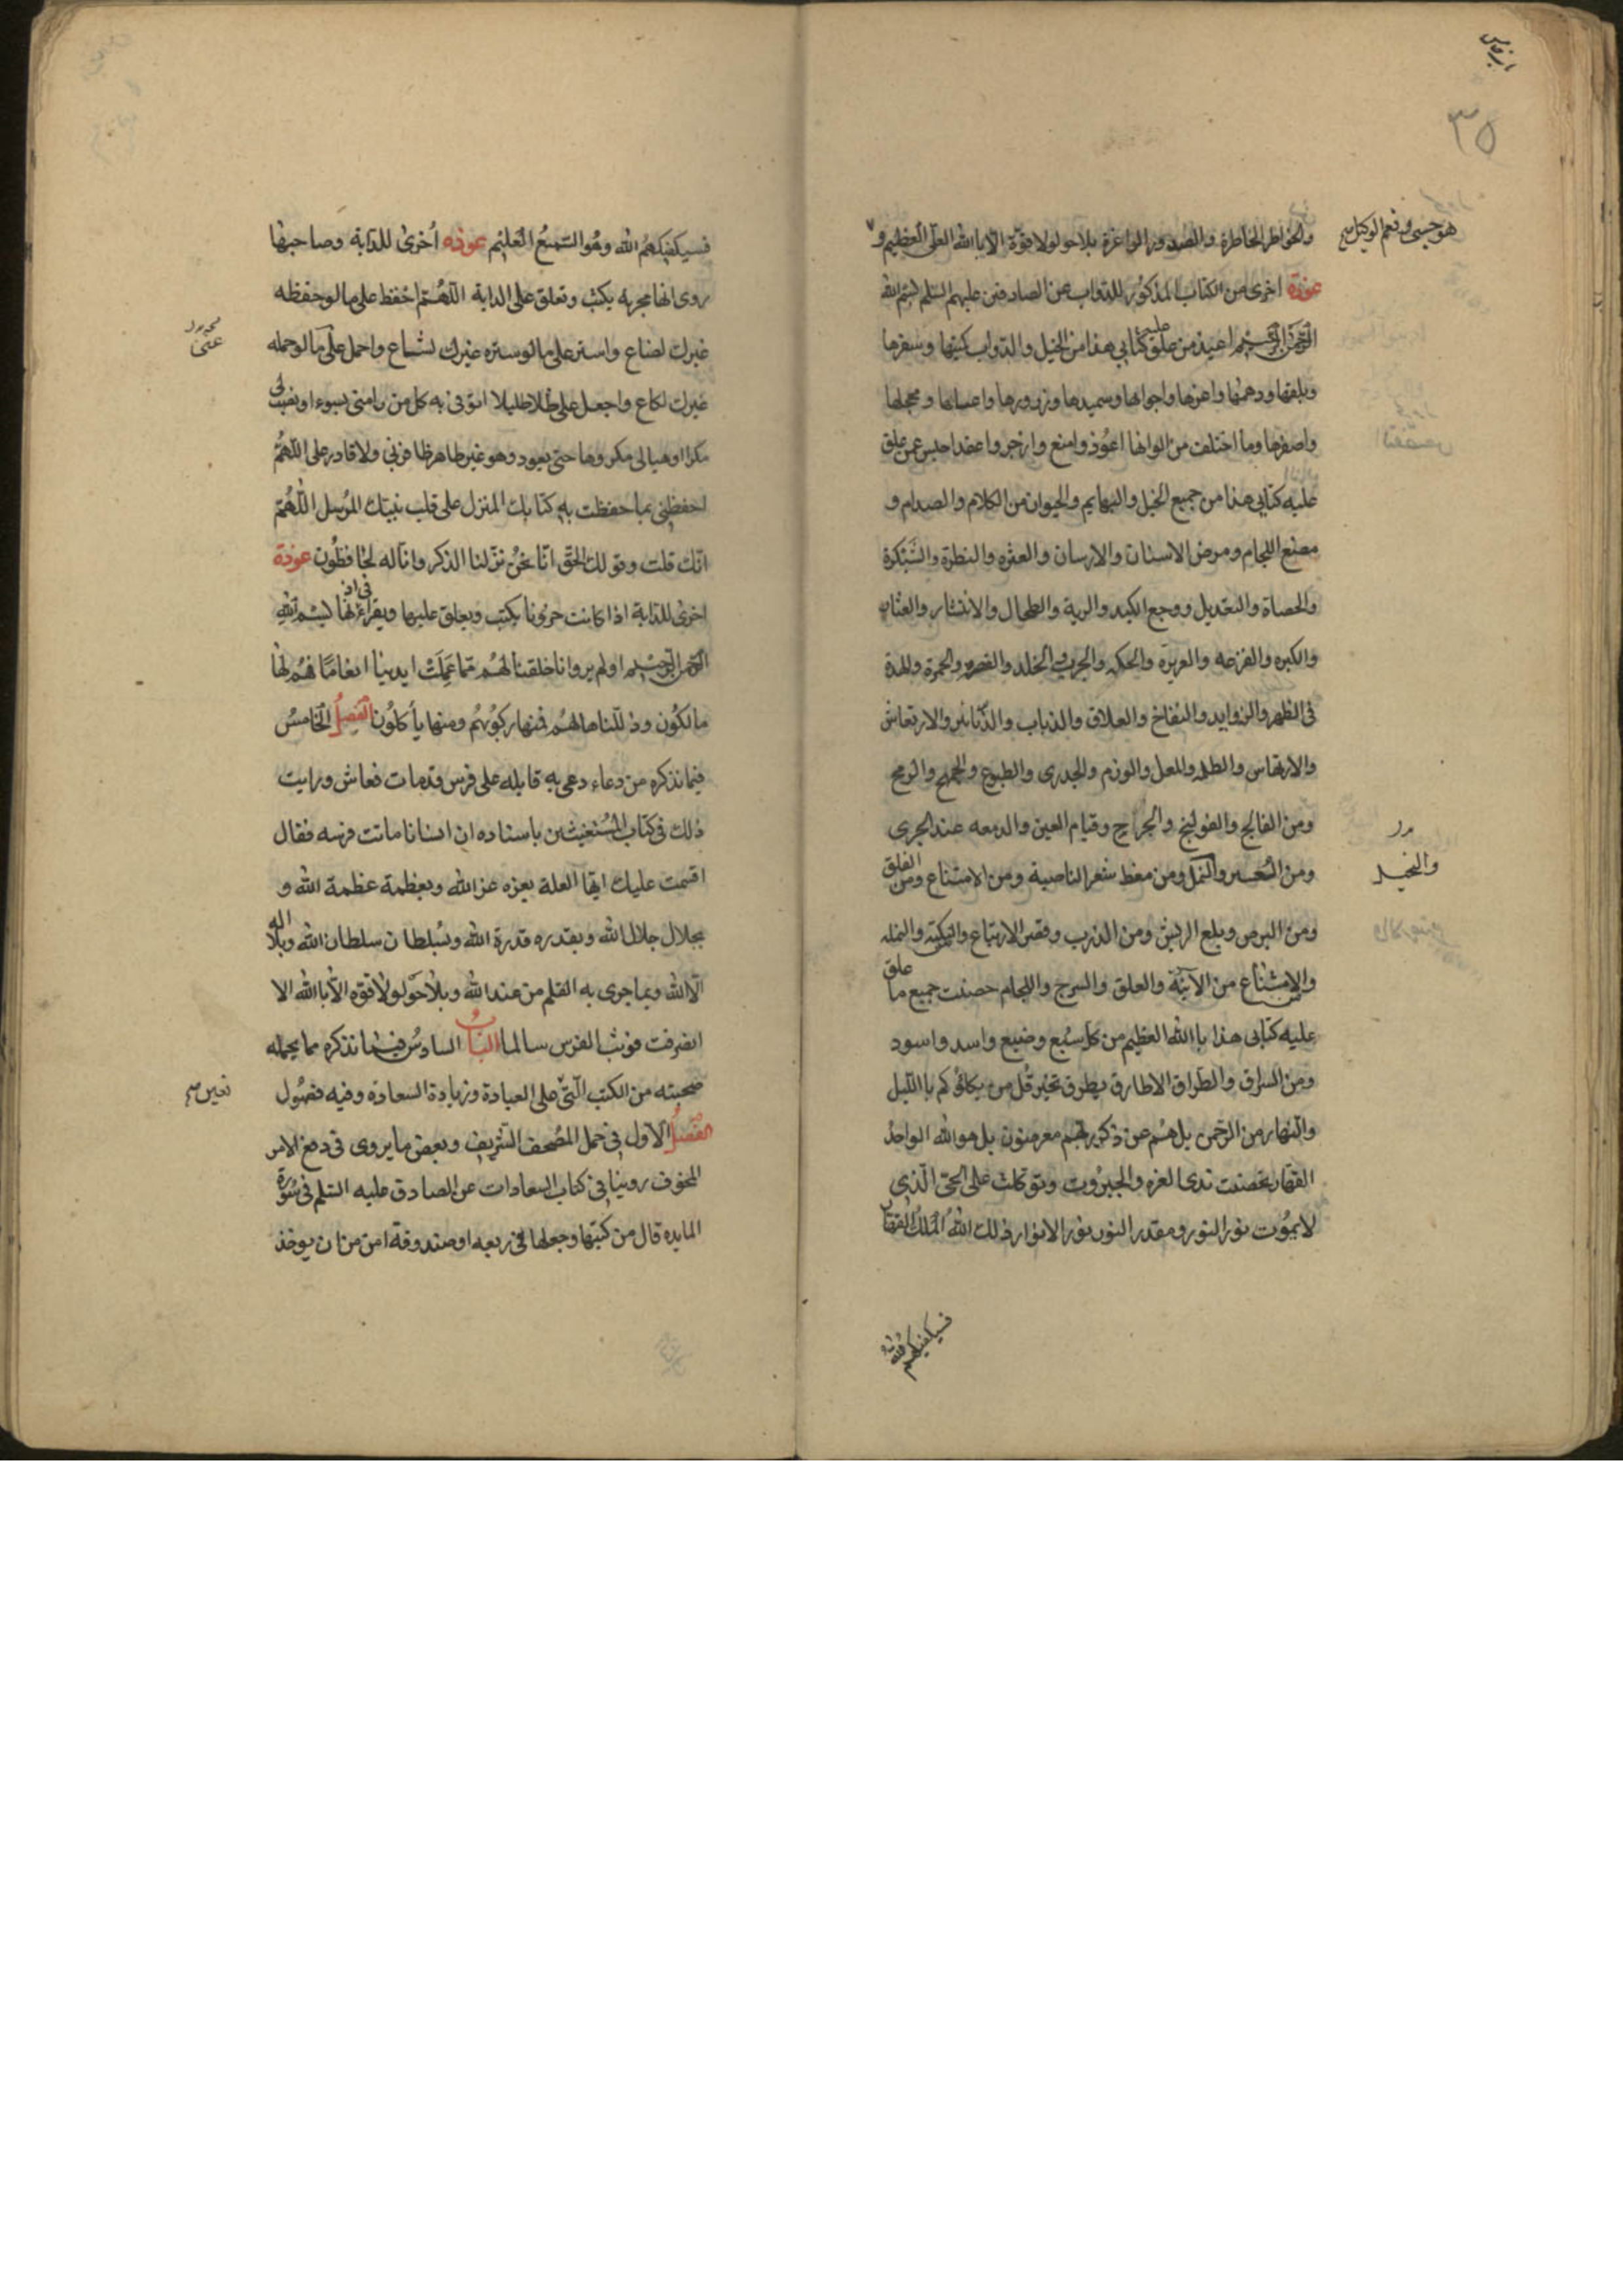 ٣٥
والخواطر الخاطرة والصدور الواغرة بلا حول ولا قوة الا بالله العلي العظيم و
هو حسبي ونعم الوكيل
عوذة اخرى من الكتاب المذكور للدواب عن الصادقين عليهم السلم بسم الله
الرحمن الرحيم اعيذ من علق عليه كتابي هذا من الخيل والدواب كميتها وشقرها
وبلقها ودهمها واغرها واحوالها وسميدها وزبرورها واعسانها ومحجلها
واصفرها وما اختلف من الوانها اعوذ وامنع وازجر واعقد احبس عن علق
عليه كتابي هذا من جميع الخيل والبهايم والحيوان من الكلام والصدام و
مضغ اللجام ومرض الاسنان والارسان والعثره والنظرة والشبكرة
والحصاة والتعديل ووجع الكبد والرية والطحال والانتشار والعثار
والكبره والفزعه والعزيزة والحكه والجرب والخلد والقصر والحمرة والهدة
في الظهر والزوايد والنفاخ والعلاق والذباب والذنانير والارتعاش
والارتهاس والطله والمعل والورم والجدري والطبوع والجمح والرمح
ومن الفالج والقولنج والجراح وقيام العين والدمعه عند الجري
والتخيل
ومن التعسير والنمل ومن معط شعر الناصية ومن الامتناع ومن العلق
ومن البرص وبلع الريش ومن الذرب وقصر الارتباع والنكبة والنمله
والامتناع من الآنية والعلق والسرج واللجام حصنت جميع ما علق
عليه كتابي هذا بالله العظيم من كل سبع وضبع واسد واسود
ومن السراق والطراق الاطارق يطرق بخير قل من يكلؤكم بالليل
والنهار من الرحمن بل هم عن ذكر ربهم معرضون بل هو الله الواحد
القهار تحصنت بذي العزه والجبروت وتوكلت على الحي الذي
لا يموت نور النور ومقدر النور نور الانوار ذلك الله الملك القهار
فسيكفيكهم الله
فسيكفيكهم الله وهو السميع العليم عوذه اخرى للدابة وصاحبها
روى انها مجربه يكتب وتعلق على الدابة اللهم احفظ على ما لو حفظه
غيرك لضاع واستر على ما لو ستره غيرك لشاع واحمل على ما لو حمله
عني
غيرك لكاع واجعل على ظلا ظليلا اتوقى به كل من رامني بسوء او نصب لي
مكرا او هيا لي مكروها حتى يعود وهو غير ظاهر ظافر بي ولا قادر على اللهم
احفظني بما حفظت به كتابك المنزل على قلب نبيك المرسل اللهم
انك قلت وقولك الحق انا نحن نزلنا الذكر وانا له لحافظون عوذة
اخرى للدابة اذا كانت حرونا يكتب ويعلق عليها ويقراء في اذنها بسم الله
الرحمن الرحيم اولم يروا انا خلقنا لهم مما عملت ايدينا انعاما فهم لها
مالكون وذللناها لهم فمنها ركوبهم ومنها يأكلون الفصل الخامس
فيما نذكره من دعاء دعى به قايله على فرس قد مات فعاش ورايت
ذلك في كتاب المستغيثين باسناده ان انسانا ماتت فرسه فقال
اقسمت عليك ايتها العلة بعزه عز الله وبعظمة عظمة الله و
بجلال جلال الله وبقدره قدرة الله وبسلطان سلطان الله وبلا اله
الا الله وبما جرى به القلم من عند الله وبلا حول ولا قوه الا بالله الا
انصرفت فوثب الفرس سالما الباب السادس فيما نذكره مما يحمله
صحبته من الكتب التي على العبادة وزيادة السعادة وفيه فصول
تعين
الفصل الاول في حمل المصحف الشريف وبعض ما يروى في دفع الامر
المخوف روينا في كتاب السعادات عن الصادق عليه السلم في سورة
المايده قال من كتبها وجعلها في ربعه او صندوقه امن من ان يوخذ